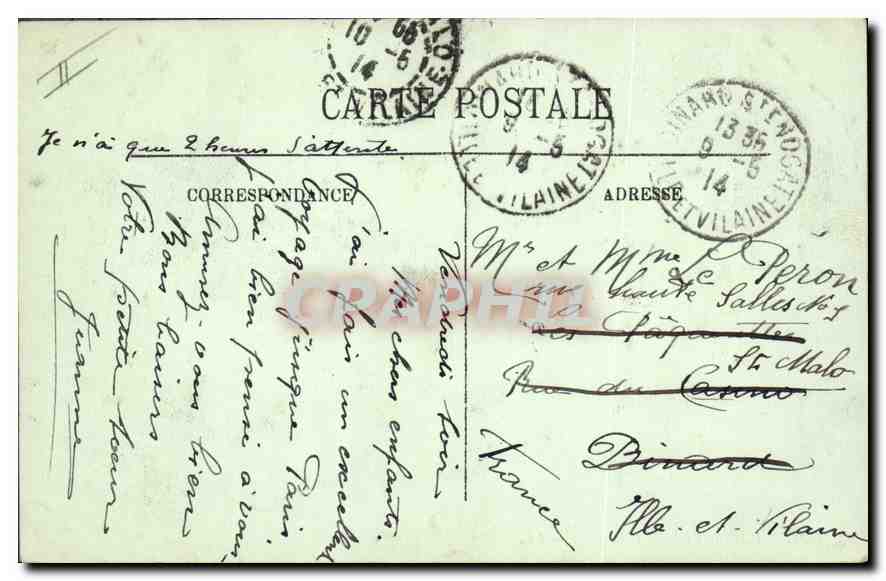 CARTE POSTALE
Je n'ai que 2 heures d'attente.
CORRESPONDANCE
ADRESSE
Vendredi soir
Mes chers enfants.
J'ai fais un excellent
voyage jusque Paris
J'ai bien pensé à vous
Amusez-vous bien
Bons baisers
Votre petite sœur
Jeanne
Mr et Mme Le Péron
rue haute Salles No 1
Les Pâquerettes
St Malo
Rue du Casino
Dinard
Ille-et-Vilaine
France
DINARD ST ENOGAT
13 35
9 -5
14
ILLE ET VILAINE
DINARD ST ENOGAT
9 -5
14
ILLE ET VILAINE
10 -5
14
CPAPHIL